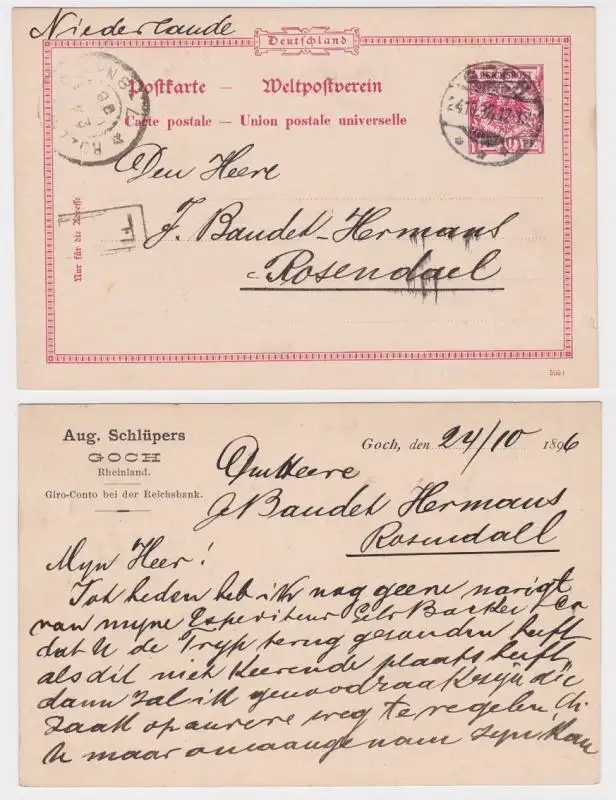 Niederlande
Deutschland
Postkarte — Weltpostverein
Carte postale — Union postale universelle
REICHSPOST
24.10.
Nur für die Adresse
Den Heere
J. Baudet-Hermans
Rosendael
Aug. Schlüpers
GOCH
Rheinland.
Giro-Conto bei der Reichsbank.
Goch, den 24/10 1896
Den Heere
J Baudet Hermans
Rosendall
Myn Heer!
Tot heden heb ik nog geene narigt
van myne Espediteur Gebr Barker
dat U de Tryp terug gesonden heeft
als dit niet keerende plaats heeft,
dann zal ik genoodzaakt zijn die
zaak op andere weg te regelen, die
U maar onaangenaam zyn kan